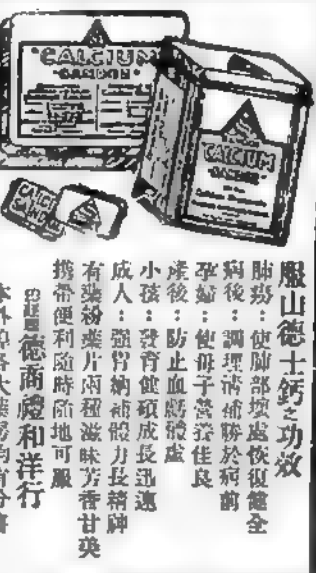 CALCIUM
"SANDOZ"
CALCIUM
"SANDOZ"
CALCIUM
SANDOZ
服山德士鈣之功效
肺癆：使肺部壞處恢復健全
病後：調理清補勝於病前
孕婦：使母子營養佳良
產後：防止血虧體虛
小孩：發育健碩成長迅速
成人：強胃納補體力長精神
有藥粉藥片兩種滋味芳香甘美
攜帶便利隨時隨地可服
德商禮和洋行
本外埠各大藥房均有分售